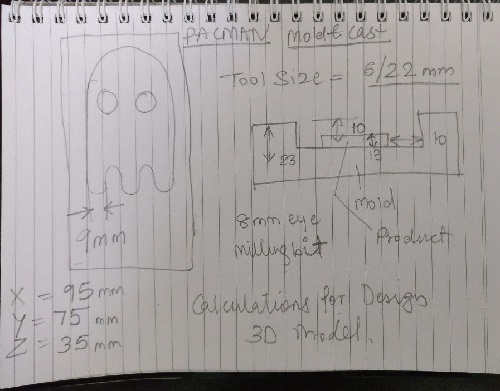 PACMAN Mold & Cast
Tool Size = 6/22 mm
10
23
13
10
Mold
Product
8mm eye
milling bit
9mm
X = 95 mm
Y = 75 mm
Z = 35 mm
Calculations for Design
3D Model.